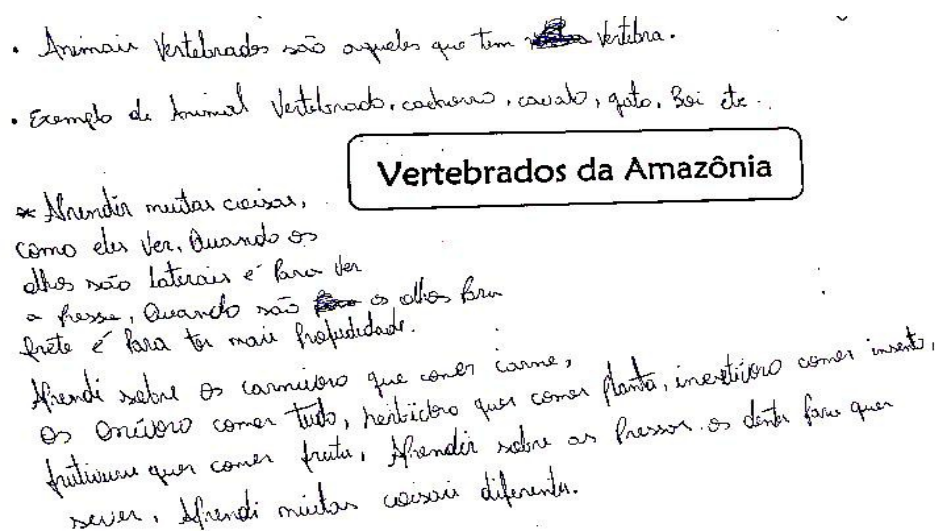 • Animais Vertebrados são aqueles que tem vertebra.
• Exemplo de Animal Vertebrado, cachorro, cavalo, gato, Boi etc..
Vertebrados da Amazônia
* Aprendir muitas coisas,
como eles Ver, Quando os
olhos são laterais é Para Ver
a Presse, Quando são os olhos Para
frete é Para ter mais
Aprendi sobre os carnivoro que comer carne,
os Onivoro comer tudo, herbicoro quer comer planta, comer inseto,
quer comer fruta, Aprendir sobre as Pressas os dentes para quer
server, Aprendi muitas coisais diferentes.